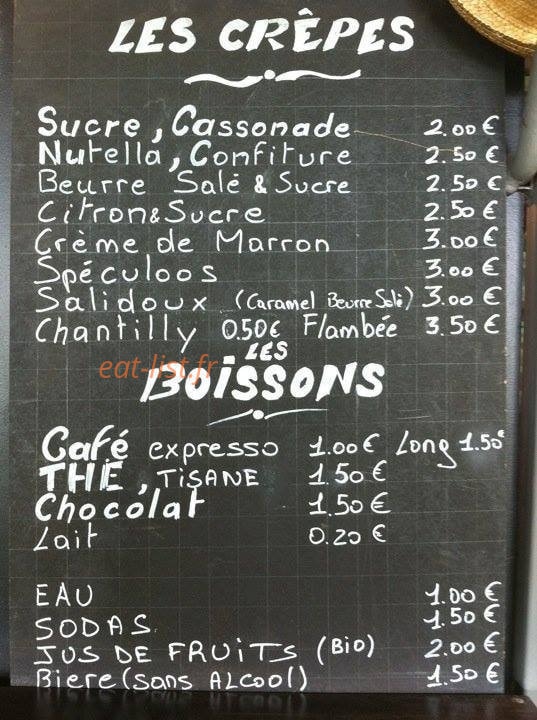 LES CRÊPES
Sucre, Cassonade 2.00 €
Nutella, Confiture 2.50 €
Beurre Salé & Sucre 2.50 €
Citron & Sucre 2.50 €
Crème de Marron 3.00 €
Spéculoos 3.00 €
Salidoux (Caramel Beurre Salé) 3.00 €
Chantilly 0.50€ Flambée 3.50 €
LES
eat-list.fr
BOISSONS
Café expresso 1.00 € Long 1.50€
THE, TiSANE 1.50 €
Chocolat 1.50 €
Lait 0.20 €
EAU 1.00 €
SODAS 1.50 €
JUS DE FRUiTS (Bio) 2.00 €
Biere (sans ALcool) 1.50 €